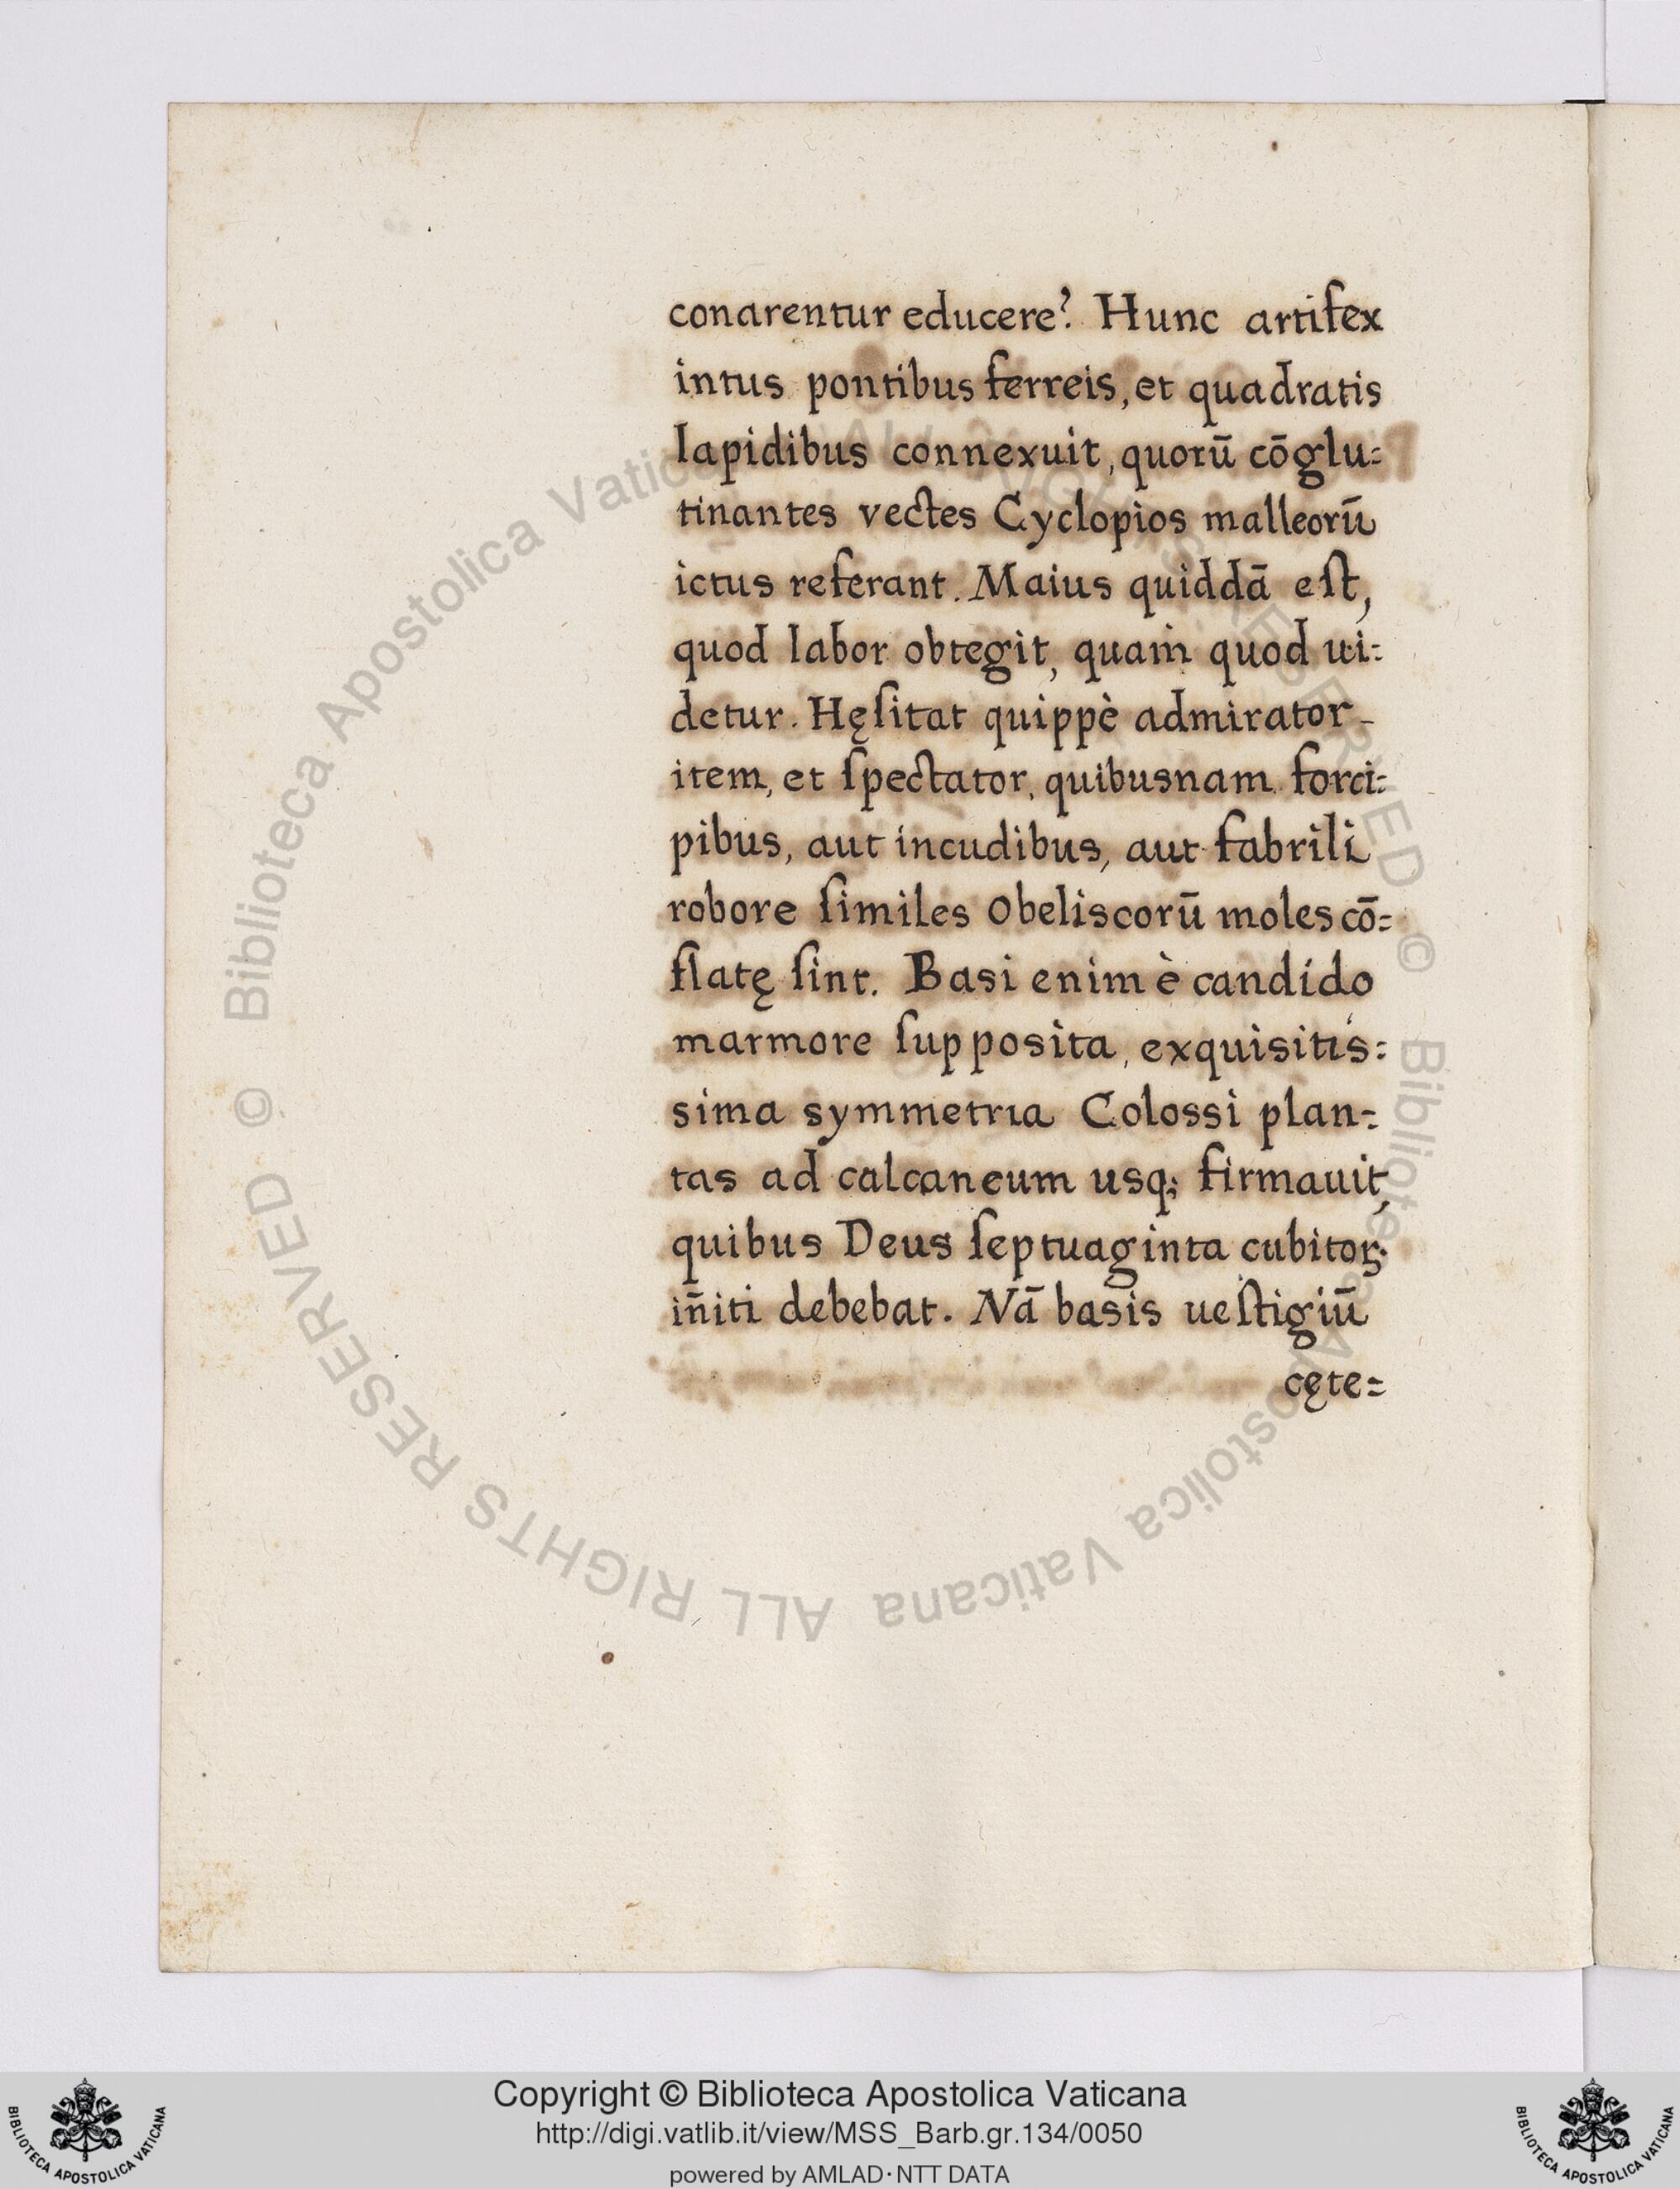 conarentur educere? Hunc artifex
intus pontibus ferreis, et quadratis
lapidibus connexuit, quorū cōglu=
tinantes vectes Cyclopios malleorū
ictus referant. Maius quiddā eſt,
quod labor obtegit, quam quod ui=
detur. Hęſitat quippè admirator
item, et ſpectator, quibusnam forci=
pibus, aut incudibus, aut fabrili
robore ſimiles Obeliscorū moles cō=
flatę ſint. Basi enim è candido
marmore ſupposita, exquisitis=
sima symmetria Colossi plan=
tas ad calcaneum usq; firmauit,
quibus Deus ſeptuaginta cubitoꝝ
iñiti debebat. Nā basis ueſtigiū
cęte=
© Biblioteca Apostolica Vaticana ALL RIGHTS RESERVED © Biblioteca Apostolica Vaticana ALL RIGHTS RESERVED
Copyright © Biblioteca Apostolica Vaticana
http://digi.vatlib.it/view/MSS_Barb.gr.134/0050
powered by AMLAD·NTT DATA
BIBLIOTECA APOSTOLICA VATICANA
BIBLIOTECA APOSTOLICA VATICANA